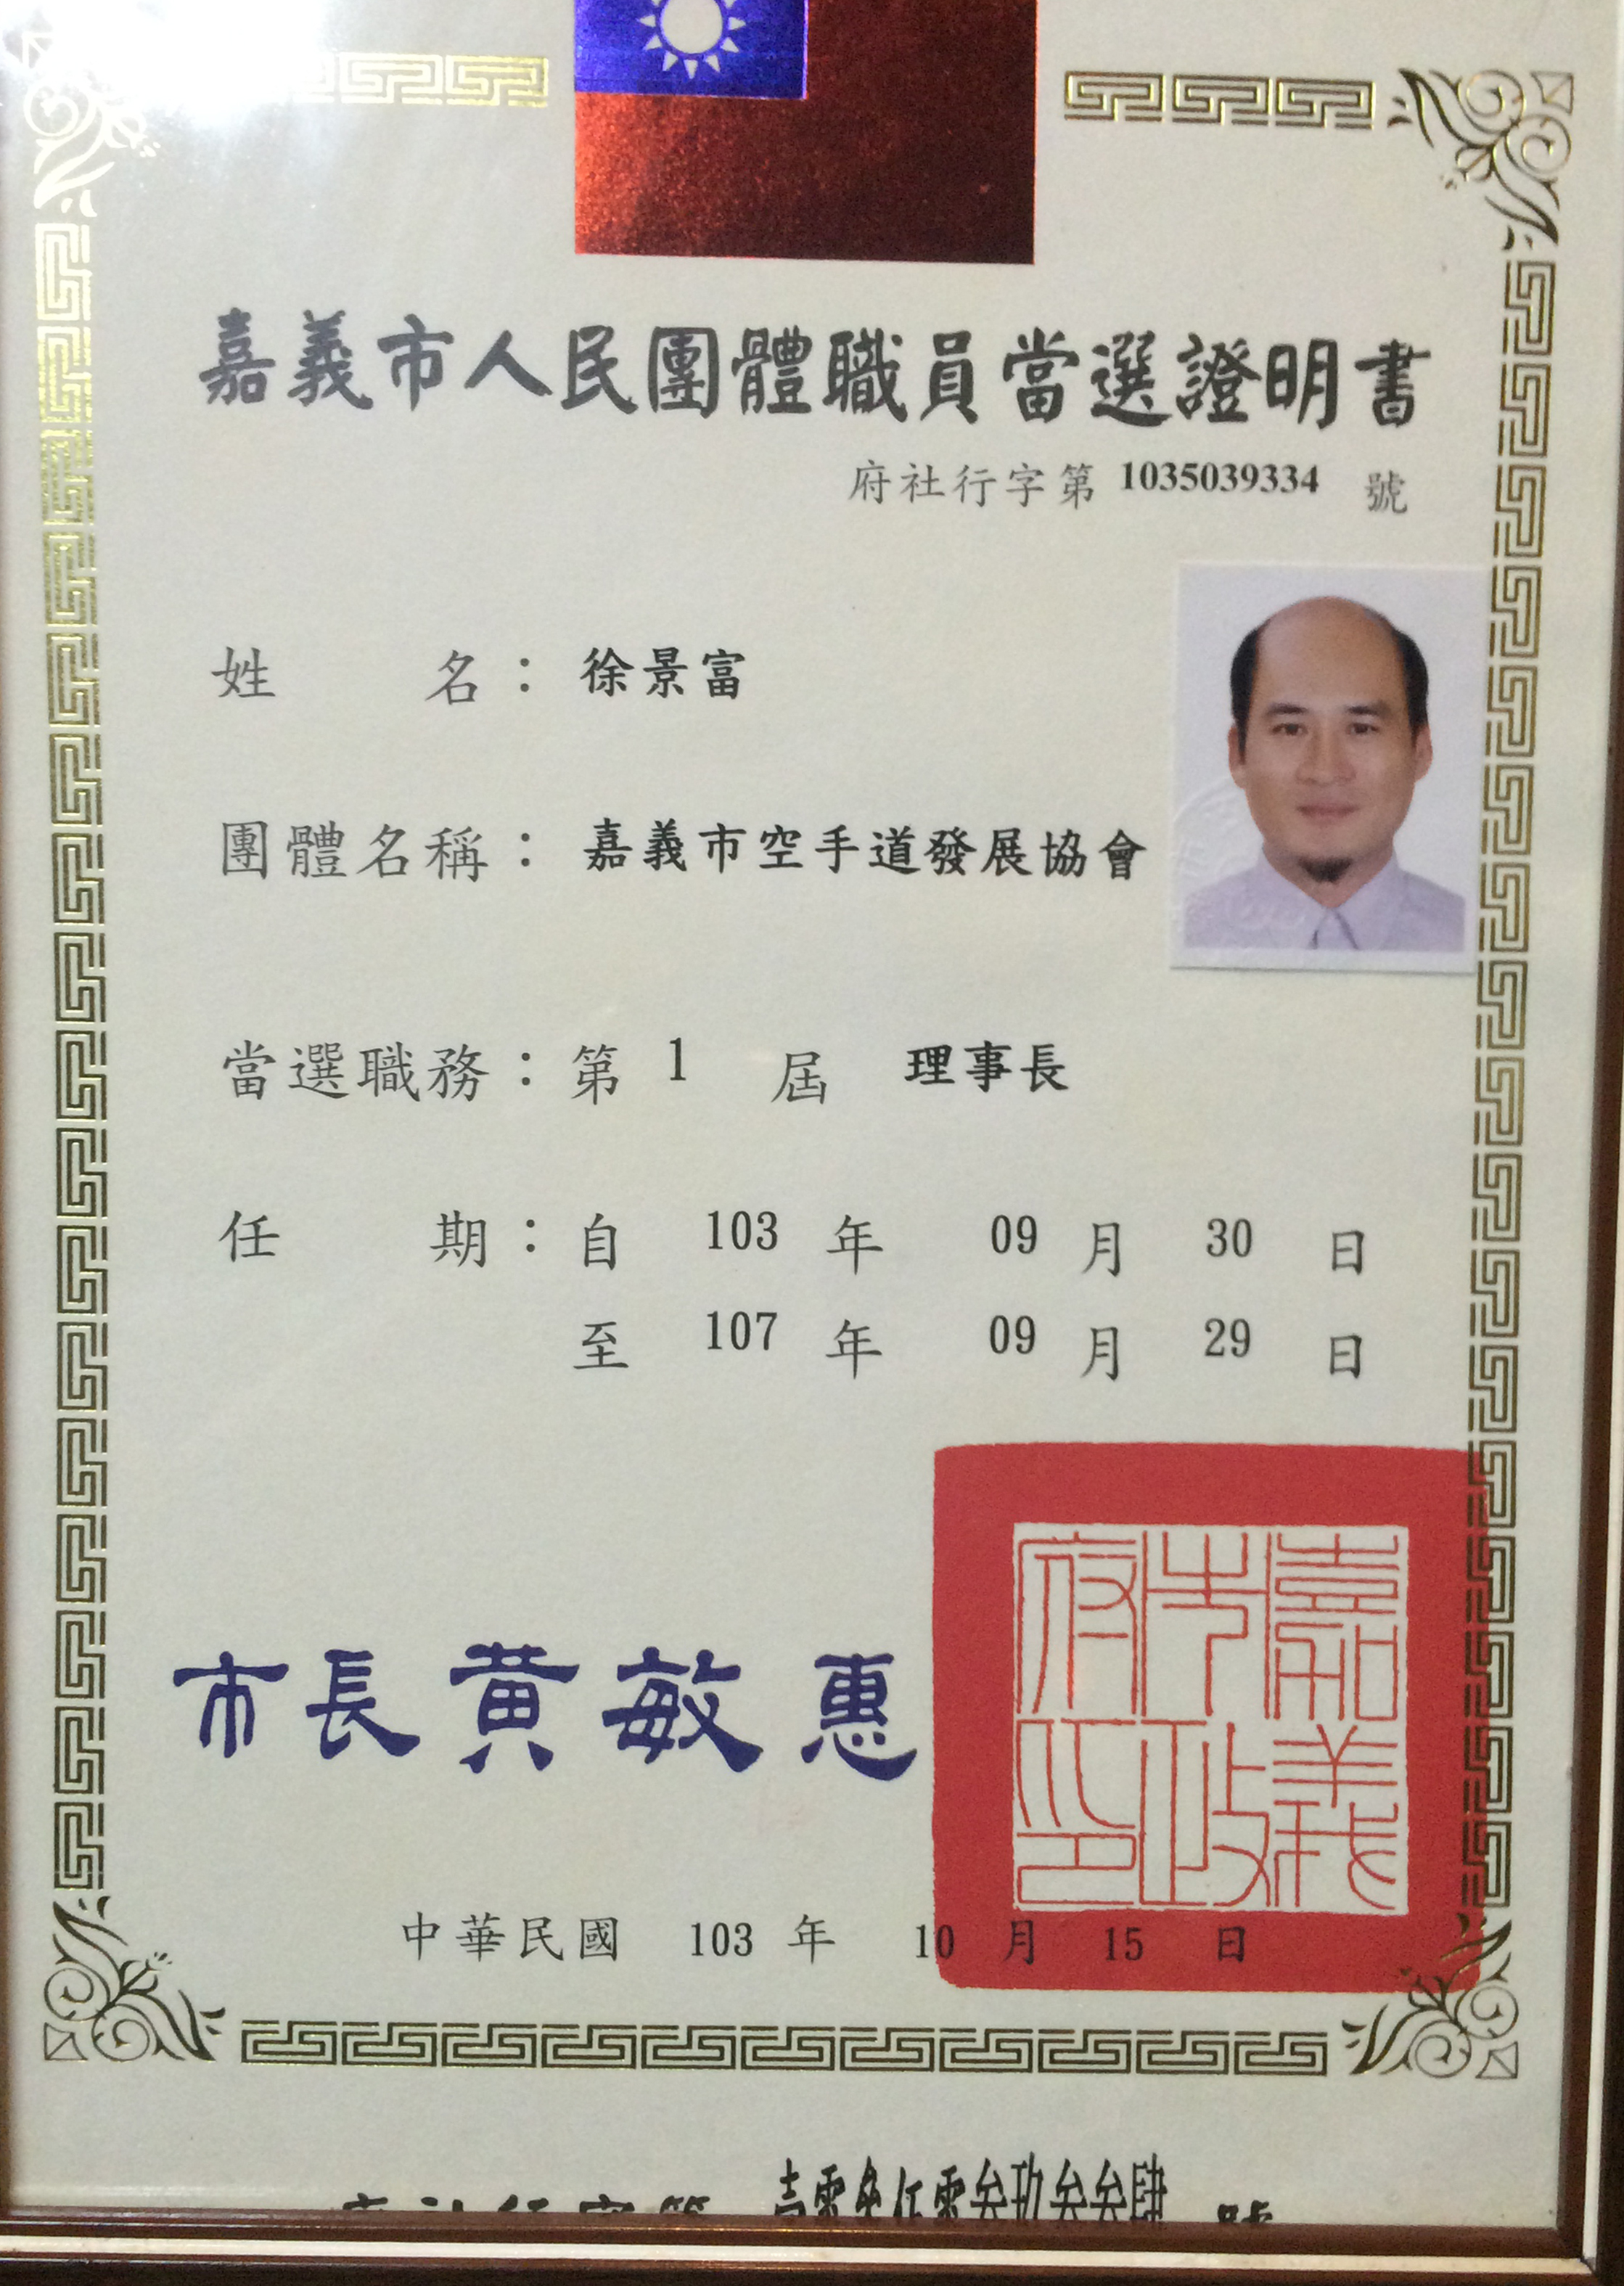 嘉義市人民團體職員當選證明書
府社行字第 1035039334 號
姓名：徐景富
團體名稱：嘉義市空手道發展協會
當選職務：第 1 屆 理事長
任期：自 103 年 09 月 30 日
至 107 年 09 月 29 日
嘉義市政府印
市長黃敏惠
中華民國 103 年 10 月 15 日